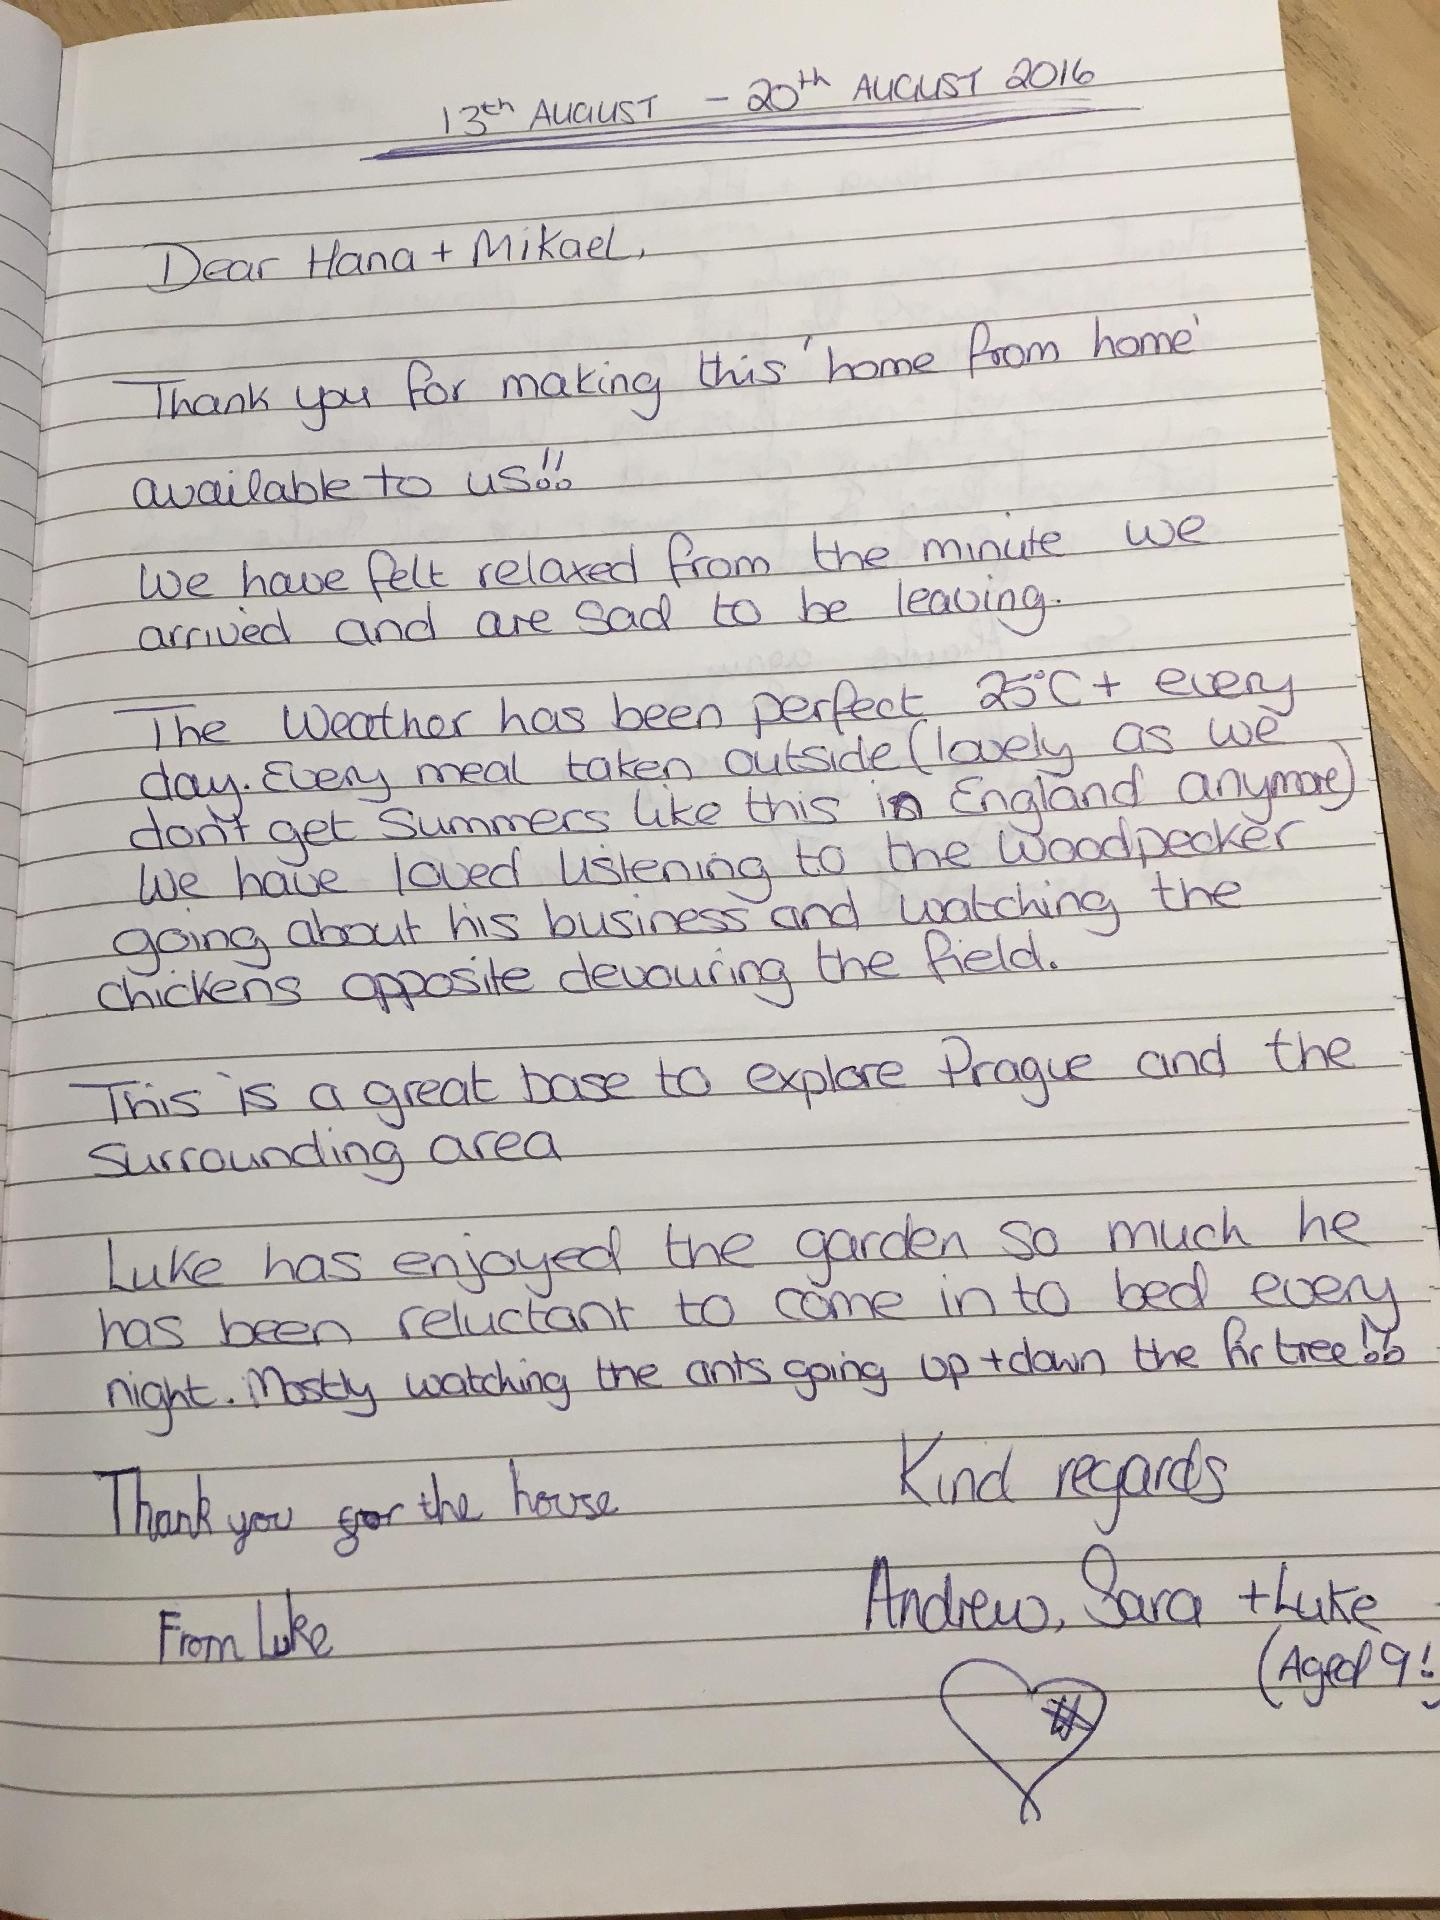 13th AUGUST - 20th AUGUST 2016
Dear Hana + Mikael,
Thank you for making this 'home from home'
available to us!!
We have felt relaxed from the minute we
arrived and are sad to be leaving.
The Weather has been perfect 25°C + every
day. Every meal taken outside (lovely as we
don't get Summers like this in England anymore)
We have loved listening to the Woodpecker
going about his business and watching the
chickens opposite devouring the field.
This is a great base to explore Prague and the
surrounding area
Luke has enjoyed the garden so much he
has been reluctant to come in to bed every
night. Mostly watching the ants going up + down the fir tree!!
Kind regards
Thank you for the house
Andrew, Sara + Luke
From Luke
(Aged 9!)